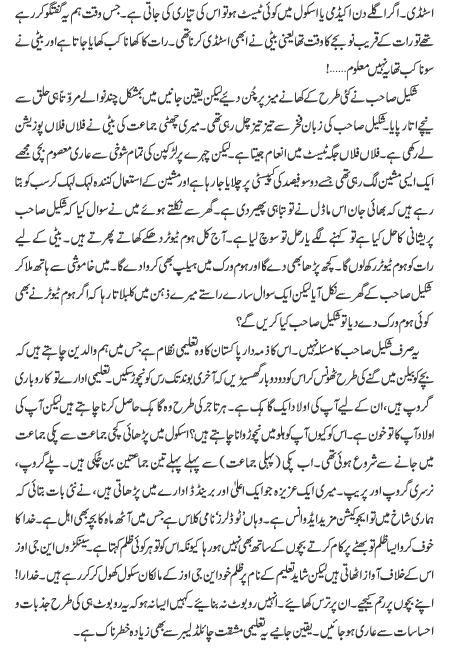 اسٹڈی۔ اگر اگلے دن اکیڈمی یا اسکول میں کوئی ٹیسٹ ہو تو اس کی تیاری کی جاتی ہے۔ جس وقت ہم یہ گفتگو کر رہے
تھے تو رات کے قریب نو بجے کا وقت تھا یعنی بیٹی نے ابھی اسٹڈی کرنا تھی۔ رات کا کھانا کب کھایا جاتا ہے اور بیٹی نے
سونا کب تھا یہ نہیں معلوم......!
شکیل صاحب نے کئی طرح کے کھانے میز پر چُن دیئے لیکن یقین جانیں میں بمشکل چند نوالے مروّتاً ہی حلق سے
نیچے اتار پایا۔ شکیل صاحب کی زبان فخر سے تیز تیز چل رہی تھی۔ میری چھٹی جماعت کی بیٹی نے فلاں فلاں پوزیشن
لے رکھی ہے۔ فلاں فلاں جگہ ٹیسٹ میں انعام جیتا ہے۔ لیکن چہرے پر لڑکپن کی تمام شوخی سے عاری معصوم بچی مجھے
ایک ایسی مشین لگ رہی تھی جسے دو سو فیصد کی کپیسٹی پر چلایا جا رہا ہے اور مشین کے استعمال کنندہ لہک لہک کر سب کو بتا
رہے ہیں کہ بھائی جان اس ماڈل نے تو تباہی پھیر دی ہے۔ گھر سے نکلتے ہوئے میں نے سوال کیا کہ شکیل صاحب
پریشانی کا حل کیا ہے تو کہنے لگے یار حل تو سوچ لیا ہے۔ آج کل ہوم ٹیوٹر دھکے کھاتے پھرتے ہیں۔ بیٹی کے لیے
رات کو ہوم ٹیوٹر رکھ لوں گا۔ کچھ پڑھا بھی دے گا اور ہوم ورک میں ہیلپ بھی کروا دے گا۔ میں خاموشی سے ہاتھ ملا کر
شکیل صاحب کے گھر سے نکل آیا لیکن ایک سوال سارے راستے میرے ذہن میں کلبلاتا رہا کہ اگر ہوم ٹیوٹر نے بھی
کوئی ہوم ورک دے دیا تو شکیل صاحب کیا کریں گے؟
یہ صرف شکیل صاحب کا مسئلہ نہیں۔ اس کا ذمہ دار پاکستان کا وہ تعلیمی نظام ہے جس میں ہم والدین چاہتے ہیں کہ
بچے کو بیلن میں گنے کی طرح ٹھونس کر اس کو دو دو بار گھسیڑیں کہ آخری بوند تک رس نچوڑ سکیں۔ تعلیمی ادارے تو کاروباری
گروپ ہیں، ان کے لیے آپ کی اولاد ایک گاہک ہے۔ ہر تاجر کی طرح وہ گاہک حاصل کرنا چاہتے ہیں لیکن آپ کی
اولاد آپ کا تو خون ہے۔ اس کو کیوں آپ کولہو میں نچوڑوانا چاہتے ہیں؟ اسکول میں پڑھائی کچی جماعت سے پکی جماعت
میں جانے سے شروع ہوئی تھی۔ اب پکی (پہلی جماعت) سے پہلے پہلے تین جماعتیں بن چُکی ہیں۔ پلے گروپ،
نرسری گروپ اور پریپ۔ میری ایک عزیزہ جو ایک اعلیٰ اور برینڈڈ ادارے میں پڑھاتی ہیں، نے نئی بات بتائی کہ
ہماری شاخ میں تو ایجوکیشن مزید ایڈوانس ہے۔ وہاں ’ٹوڈلرز‘ نامی کلاس ہے جس میں آٹھ ماہ کا بچہ بھی اہل ہے۔ خدا کا
خوف کرو ایسا ظلم تو بھٹے پر کام کرتے بچوں کے ساتھ بھی نہیں ہو رہا کیونکہ اس کو تو ہر کوئی ظلم کہتا ہے۔ سینکڑوں این جی اوز
اس کے خلاف آواز اٹھاتی ہیں لیکن شاید تعلیم کے نام پر ظلم خود این جی اوز کے مالکان سکول کھول کر کر رہے ہیں۔ خدارا!
اپنے بچوں پر رحم کیجیے۔ ان پر ترس کھائیے۔ انہیں روبوٹ نہ بنائیے۔ کہیں ایسا نہ ہو کہ یہ روبوٹ ہی کی طرح جذبات و
احساسات سے عاری ہو جائیں۔ یقین جانیے یہ تعلیمی مشقت چائلڈ لیبر سے بھی زیادہ خطرناک ہے۔